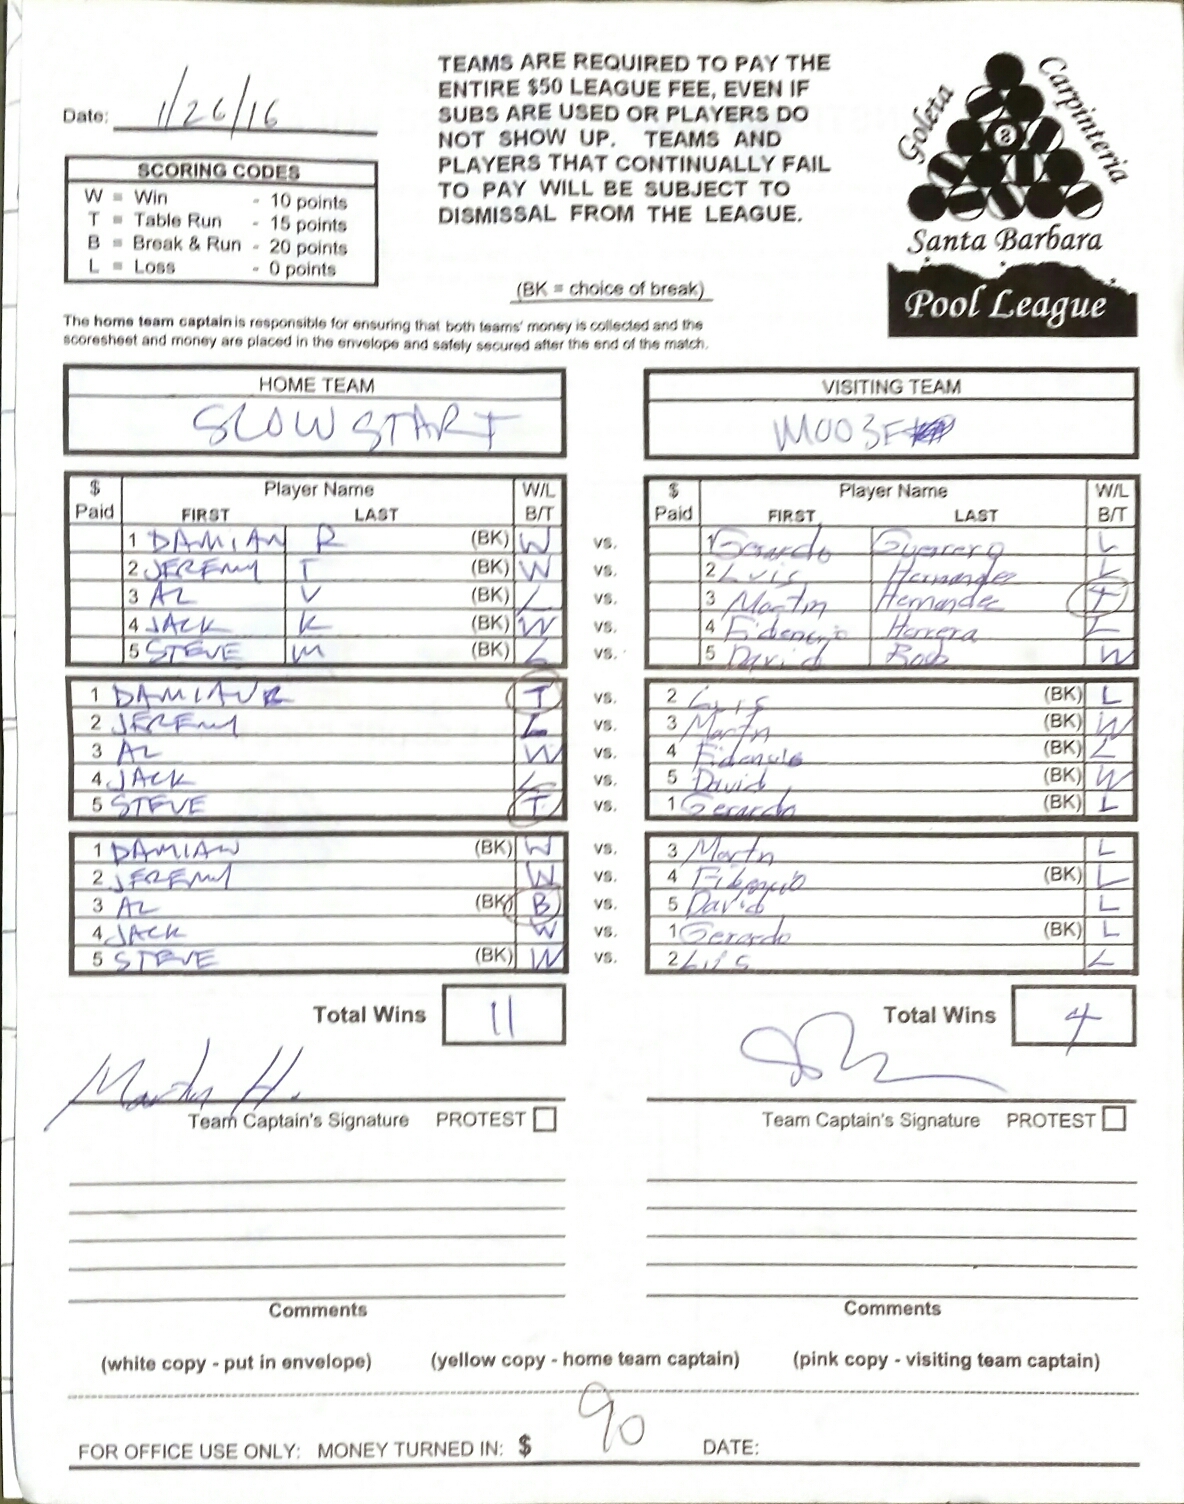 Date: 1/26/16
TEAMS ARE REQUIRED TO PAY THE
ENTIRE $50 LEAGUE FEE, EVEN IF
SUBS ARE USED OR PLAYERS DO
NOT SHOW UP. TEAMS AND
PLAYERS THAT CONTINUALLY FAIL
TO PAY WILL BE SUBJECT TO
DISMISSAL FROM THE LEAGUE.
Goleta
Carpinteria
8
Santa Barbara
Pool League
SCORING CODES
W = Win - 10 points
T = Table Run - 15 points
B = Break & Run - 20 points
L = Loss - 0 points
(BK = choice of break)
The home team captain is responsible for ensuring that both teams' money is collected and the
scoresheet and money are placed in the envelope and safely secured after the end of the match.
HOME TEAM VISITING TEAM
SLOW START MOOSE
$ Paid Player Name FIRST LAST W/L B/T $ Paid Player Name FIRST LAST W/L B/T
1 DAMIAN R (BK) W vs. 1 Gerardo Guerrero L
2 JEREMY T (BK) W vs. 2 Luis Hernandez L
3 AL V (BK) L vs. 3 Martin Hernandez T
4 JACK K (BK) W vs. 4 Herrera L
5 STEVE M (BK) L vs. 5 David W
1 DAMIAN R T vs. 2 Luis (BK) L
2 JEREMY L vs. 3 Martin (BK) W
3 AL W vs. 4 (BK) L
4 JACK L vs. 5 David (BK) W
5 STEVE T vs. 1 Gerardo (BK) L
1 DAMIAN (BK) W vs. 3 Martin L
2 JEREMY W vs. 4 (BK) L
3 AL (BK) B vs. 5 David L
4 JACK W vs. 1 Gerardo (BK) L
5 STEVE (BK) W vs. 2 Luis L
Total Wins 11 Total Wins 4
Martin H.
Team Captain's Signature PROTEST Team Captain's Signature PROTEST
Comments Comments
(white copy - put in envelope) (yellow copy - home team captain) (pink copy - visiting team captain)
FOR OFFICE USE ONLY: MONEY TURNED IN: $ 90 DATE: